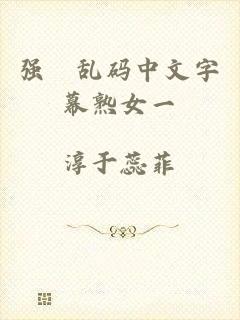 强 乱码中文字
幕熟女一
淳于蕊菲